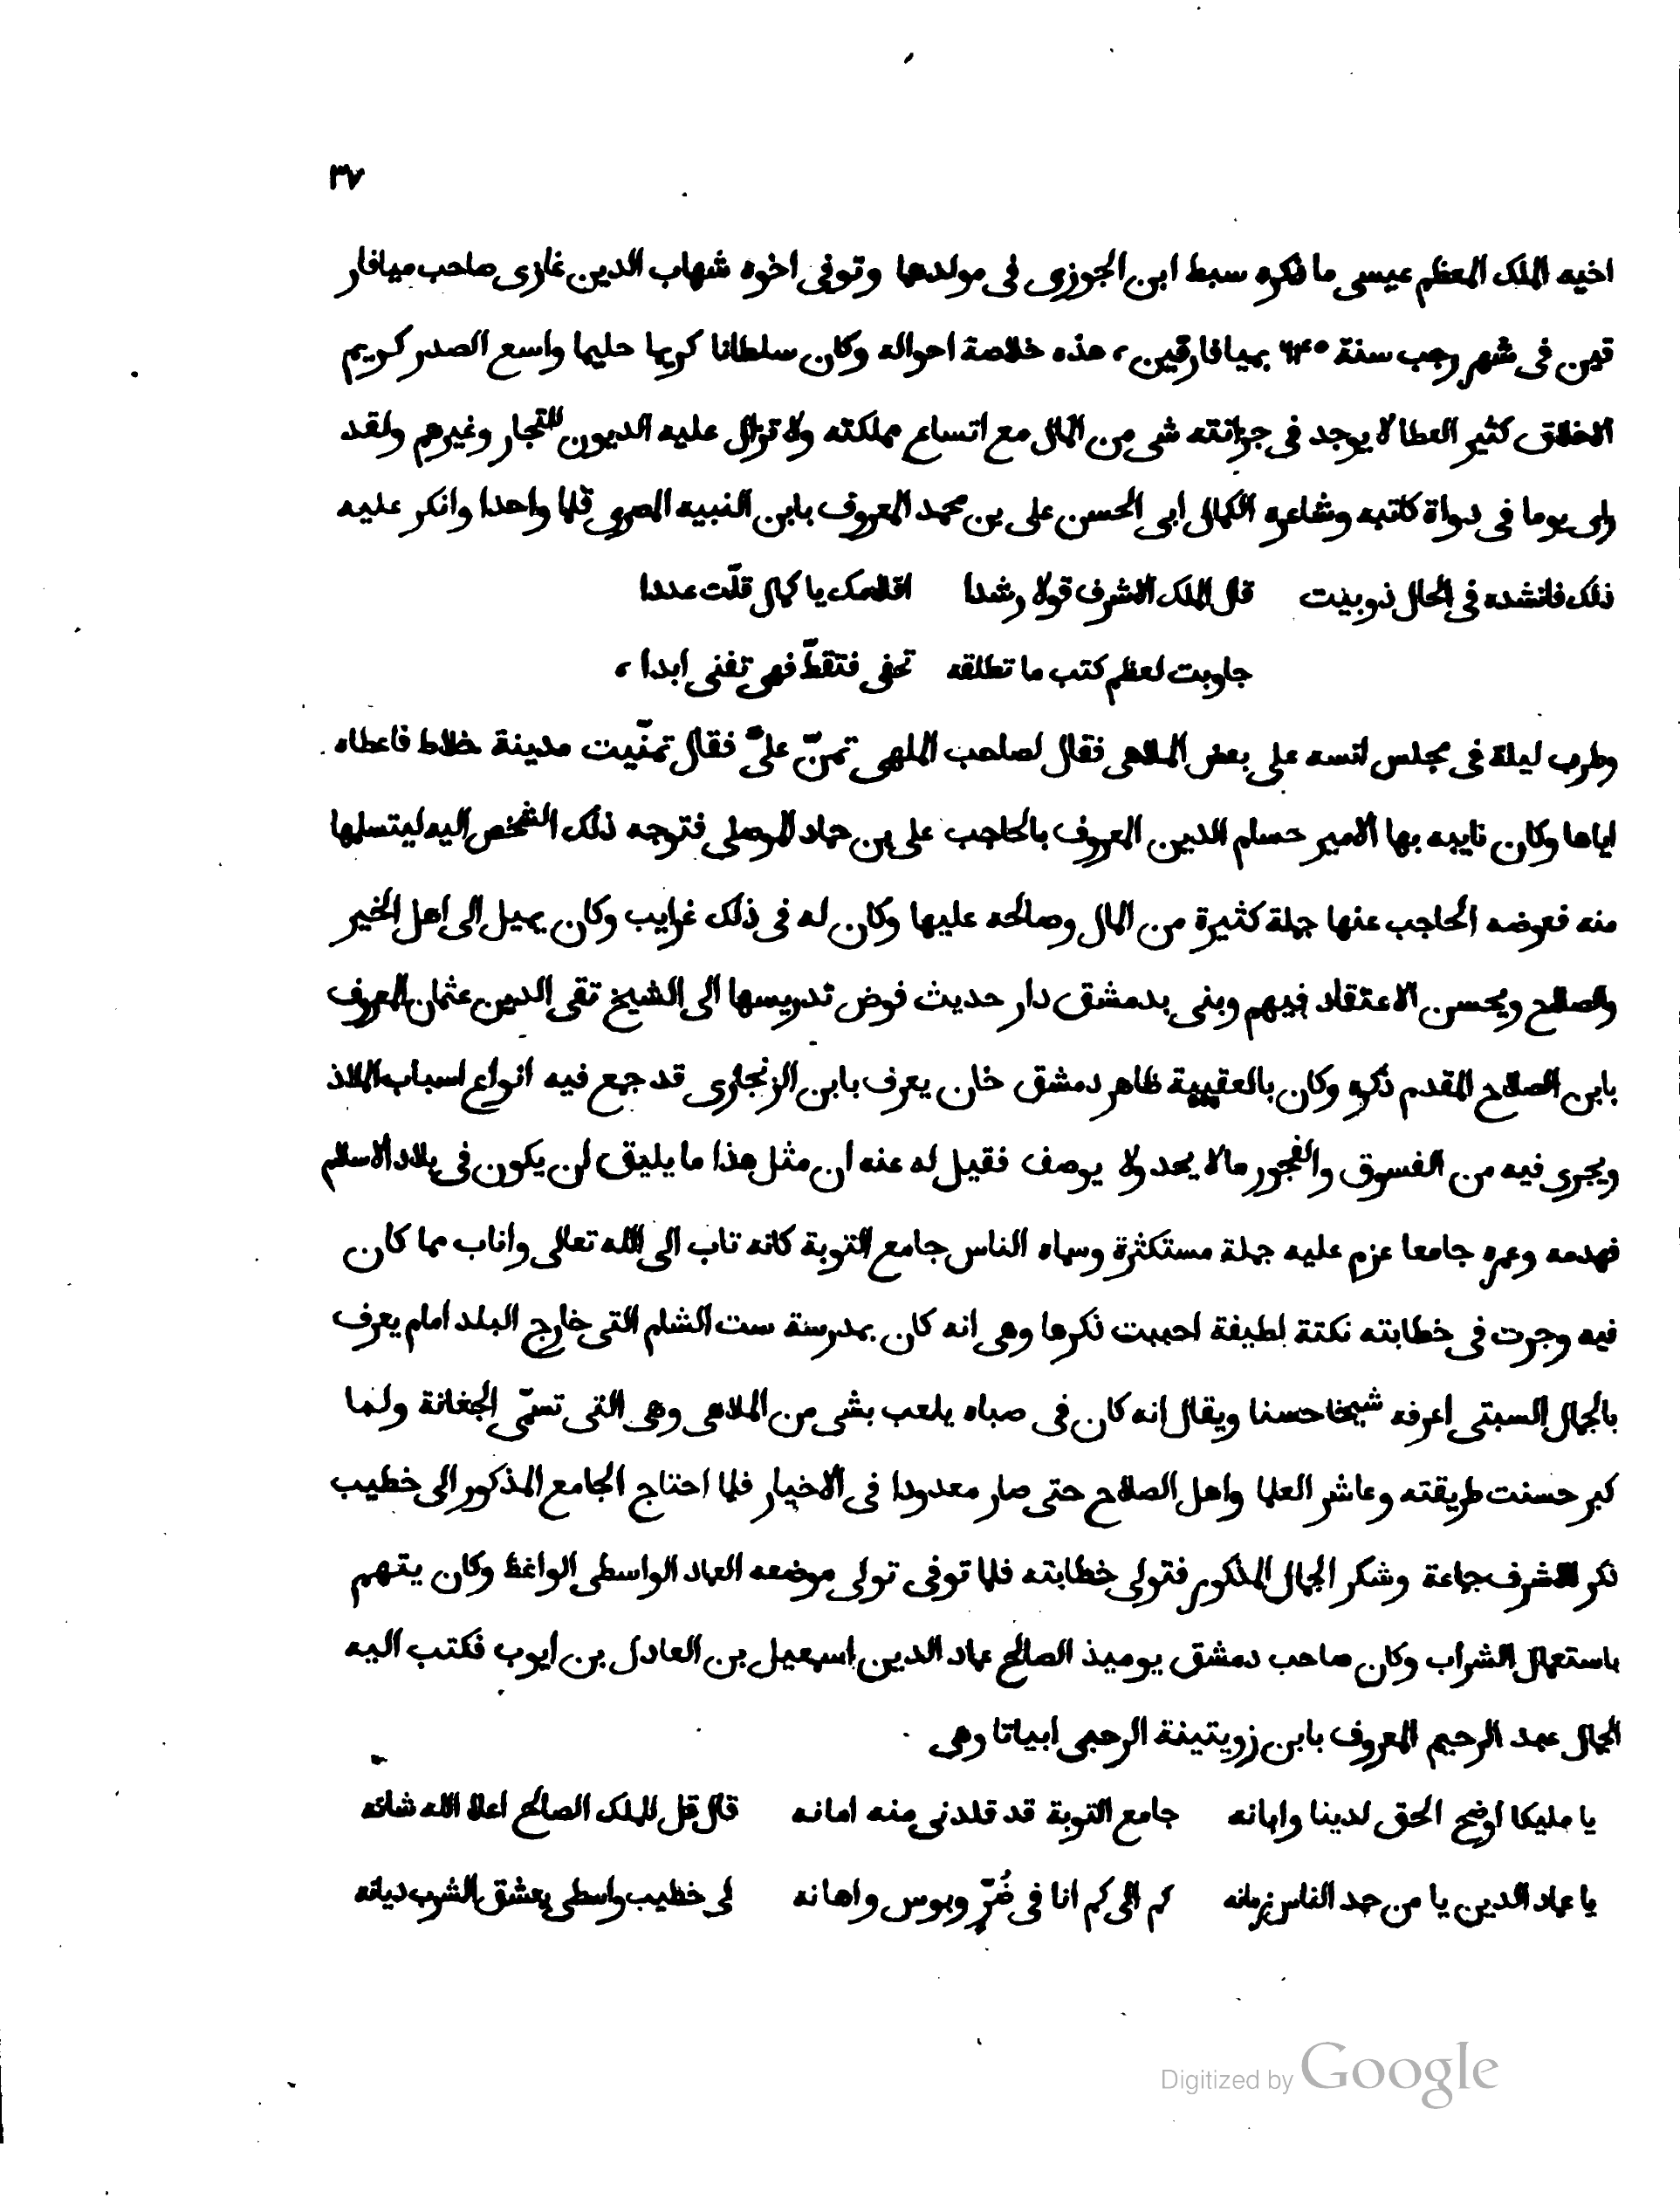 ٣٧
اخيه الملك المعظم عيسى ما ذكره سبط ابن الجوزى فى مولدهما وتوفى اخوه شهاب الدين غازى صاحب ميافار
قين فى شهر رجب سنة ٦٤٥ بميافارقين، هذه خلاصة احواله وكان سلطانا كريما حليما واسع الصدر كريم
الاخلاق كثير العطا لا يوجد فى خزانته شى من المال مع اتساع مملكته ولا تزال عليه الديون للتجار وغيرهم ولقد
راى يوما فى دواة كاتبه وشاعره الكمال ابى الحسن على بن محمد المعروف بابن النبيه المصرى قلما واحدا وانكر عليه
ذلك فانشده فى الحال ذوبيت قال الملك الاشرف قولا رشدا اقلامك يا كمال قلّت عددا
جاوبت لعظم كتب ما تطلقه تحفى فتقطّ فهى تفنى ابدا ،
وطرب ليلة فى مجلس انسه على بعض الملاهى فقال لصاحب الملهى تمنّ علىّ فقال تمنّيت مدينة خلاط فاعطاه
اياها وكان نايبه بها الامير حسام الدين المعروف بالحاجب على بن حماد الموصلى فتوجه ذلك الشخص اليه ليتسلمها
منه فعوضه الحاجب عنها جملة كثيرة من المال وصالحه عليها وكان له فى ذلك غرايب وكان يميل الى اهل الخير
والصلاح ويحسن الاعتقاد فيهم وبنى بدمشق دار حديث فوض تدريسها الى الشيخ تقى الدين عثمان المعروف
بابن الصلاح المقدم ذكره وكان بالعقيبية ظاهر دمشق خان يعرف بابن الزنجارى قد جمع فيه انواع اسباب الملاذ
ويجرى فيه من الفسوق والفجور ما لا يحد ولا يوصف فقيل له عنه ان مثل هذا ما يليق ان يكون فى بلاد الاسلام
فهدمه وعمره جامعا عزم عليه جملة مستكثرة وسماه الناس جامع التوبة كانه تاب الى الله تعالى واناب مما كان
فيه وجرت فى خطابته نكتة لطيفة احببت ذكرها وهى انه كان بمدرسة ست الشام التى خارج البلد امام يعرف
بالجمال السبتى اعرفه شيخا حسنا ويقال انه كان فى صباه يلعب بشى من الملاهى وهى التى تسمّى الجغانة ولما
كبر حسنت طريقته وعاشر العلما واهل الصلاح حتى صار معدودا فى الاخيار فلما احتاج الجامع المذكور الى خطيب
ذكر للاشرف جماعة وشكر الجمال المذكور فتولى خطابته فلما توفى تولى موضعه العماد الواسطى الواغظ وكان يتهم
باستعمال الشراب وكان صاحب دمشق يوميذ الصالح عماد الدين اسمعيل بن العادل بن ايوب فكتب اليه
الجمال عبد الرحيم المعروف بابن زويتينة الرحبى ابياتا وهى
يا مليكا اوضح الحق لدينا وابانه جامع التوبة قد قلدنى منه امانه قال قل للملك الصالح اعلا الله شانه
يا عماد الدين يا من حمد الناس زمانه كم الى كم انا فى ضُرّ وبوس واهانه لى خطيب واسطى يعشق الشرب ديانه